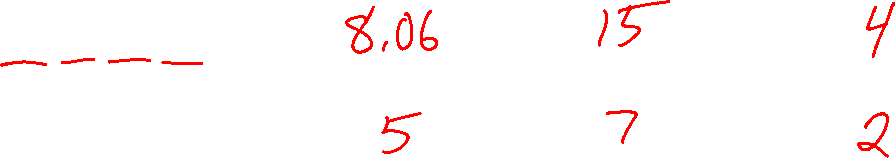 _ _ _ _ 8.06 15 4
5 7 2